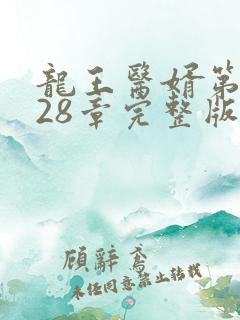 龍王醫婿第
28章完整版
顧辭鳶
未任同意禁止轉載